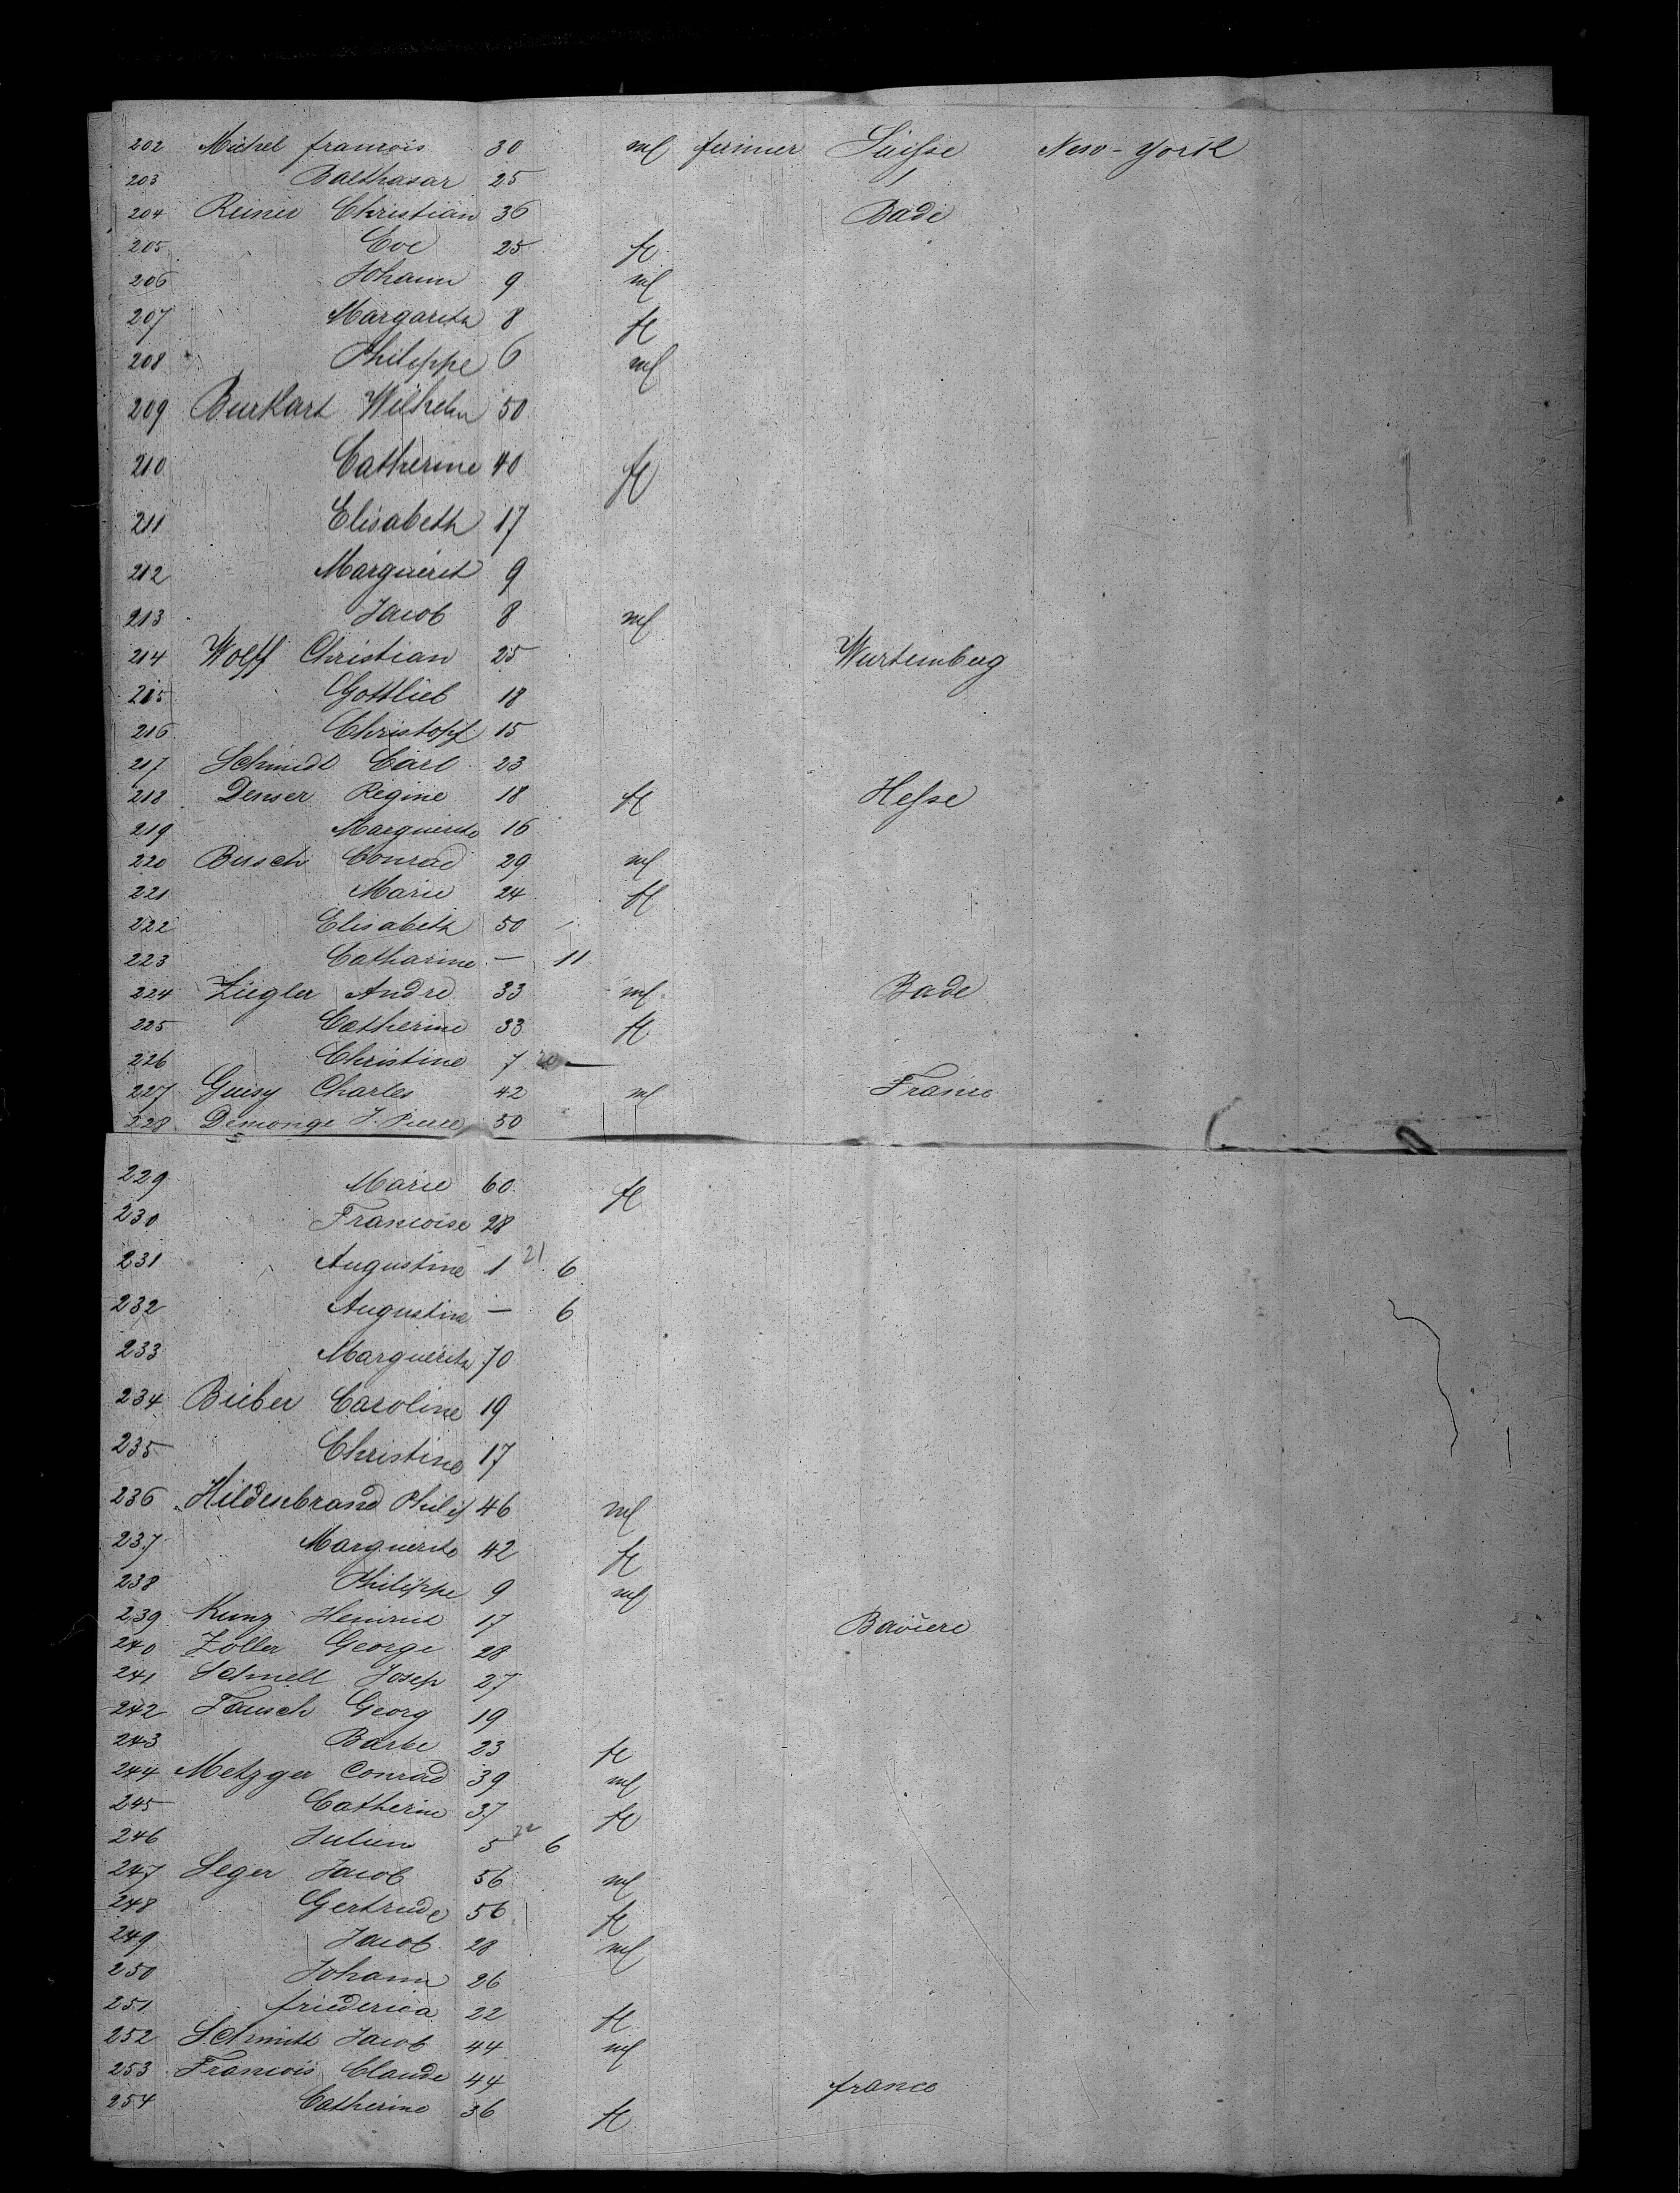 202 Michel francois 30 ml fermier Suisse New-York
203 Balthasar 25
204 Reiner Christian 36 Bade
205 Eve 25 fl
206 Johann 9 ml
207 Margareta 8 fl
208 Philippe 6 ml
209 Burkart Wilhelm 50
210 Catherine 40 fl
211 Elisabeth 17
212 Marguerit 9
213 Jacob 8 ml
214 Wolff Christian 25 Wurtemberg
215 Gottlieb 18
216 Christoff 15
217 Schmidt Carl 23
218 Denser Regine 18 fl Hesse
219 Marguerite 16
220 Busch Conrad 29 ml
221 Marie 24 fl
222 Elisabeth 50
223 Catharine — 11
224 Ziegler Andre 33 ml Bade
225 Catherine 33 fl
226 Christine 7 20 —
227 Guisy Charles 42 ml France
228 Demonge J. Pierre 50
229 Marie 60 fl
230 Francoise 28
231 Augustine 1 21 6
232 Augustine — 6
233 Marguerite 70
234 Bieber Caroline 19
235 Christine 17
236 Hildenbrand Philip 46 ml
237 Marguerite 42 fl
238 Philippe 9 ml
239 Kunz Heinrich 17 Baviere
240 Zoller George 28
241 Schnell Josep 27
242 Tausch Georg 19
243 Barbe 23 fl
244 Metzger Conrad 39 ml
245 Catherine 37 fl
246 Julien 5 22 6
247 Seger Jacob 56 ml
248 Gertrude 56 fl
249 Jacob 28 ml
250 Johann 26
251 friederica 22 fl
252 Schmitt Jacob 44 ml
253 Francois Claude 44 france
254 Catherine 36 fl